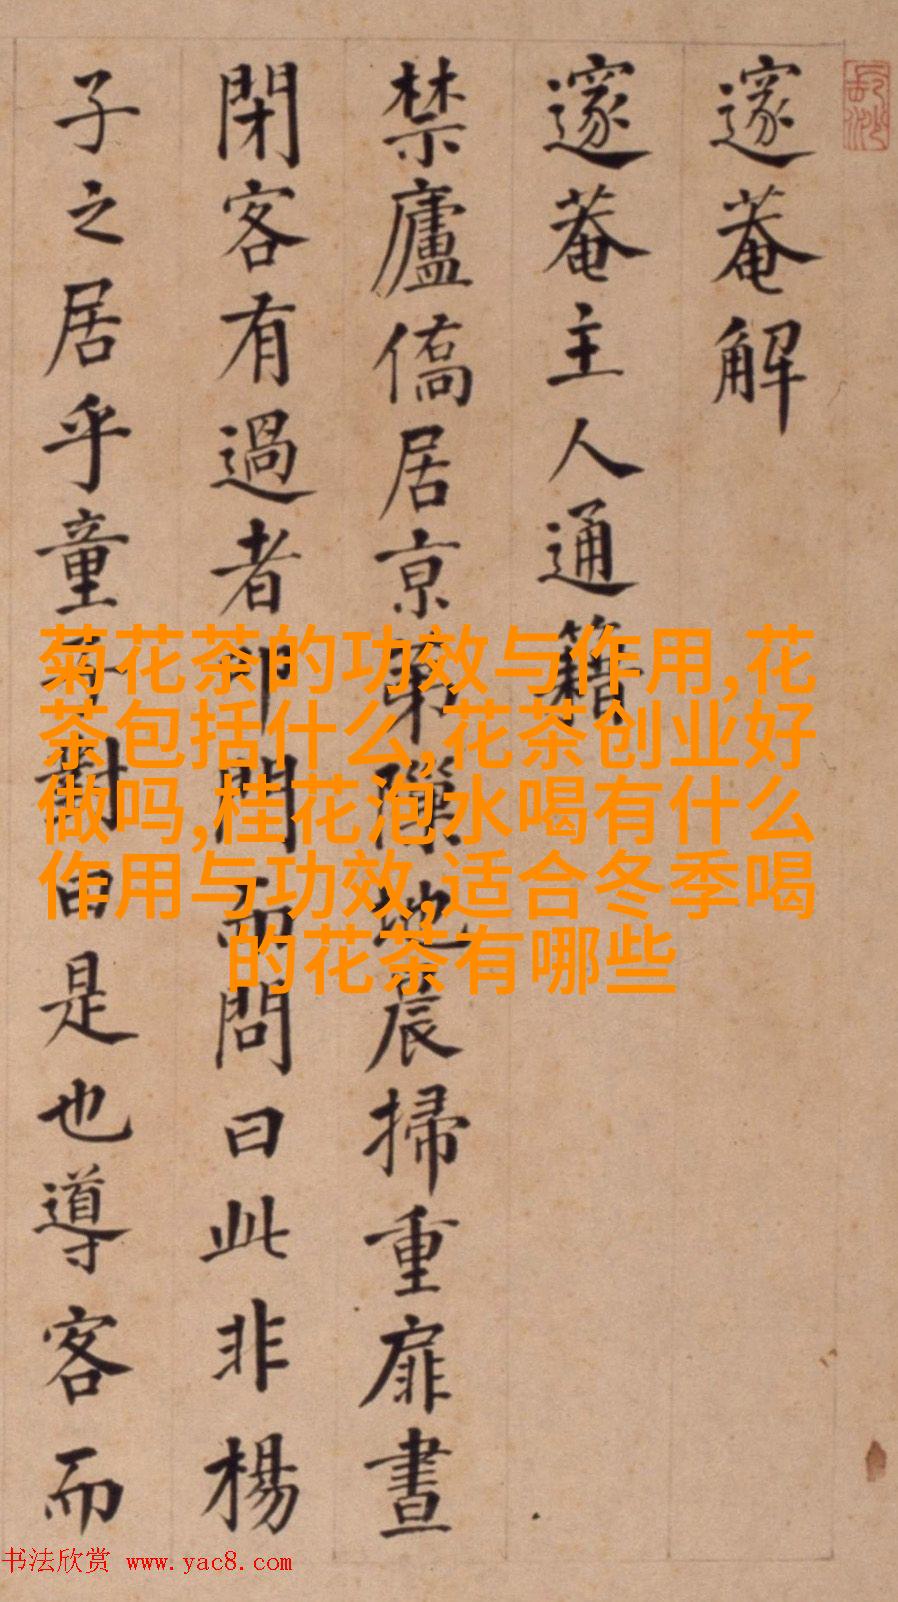 邃菴解
邃菴主人通籍
禁廬僑居京第地晨掃重扉晝
閉客有過者叩門而問曰此非楊
子之居乎童對曰是也導客而
菊花茶的功效与作用,花
茶包括什么,花茶创业好
做吗,桂花泡水喝有什么
作用与功效,适合冬季喝
的花茶有哪些
书法欣赏 www.yac8.com